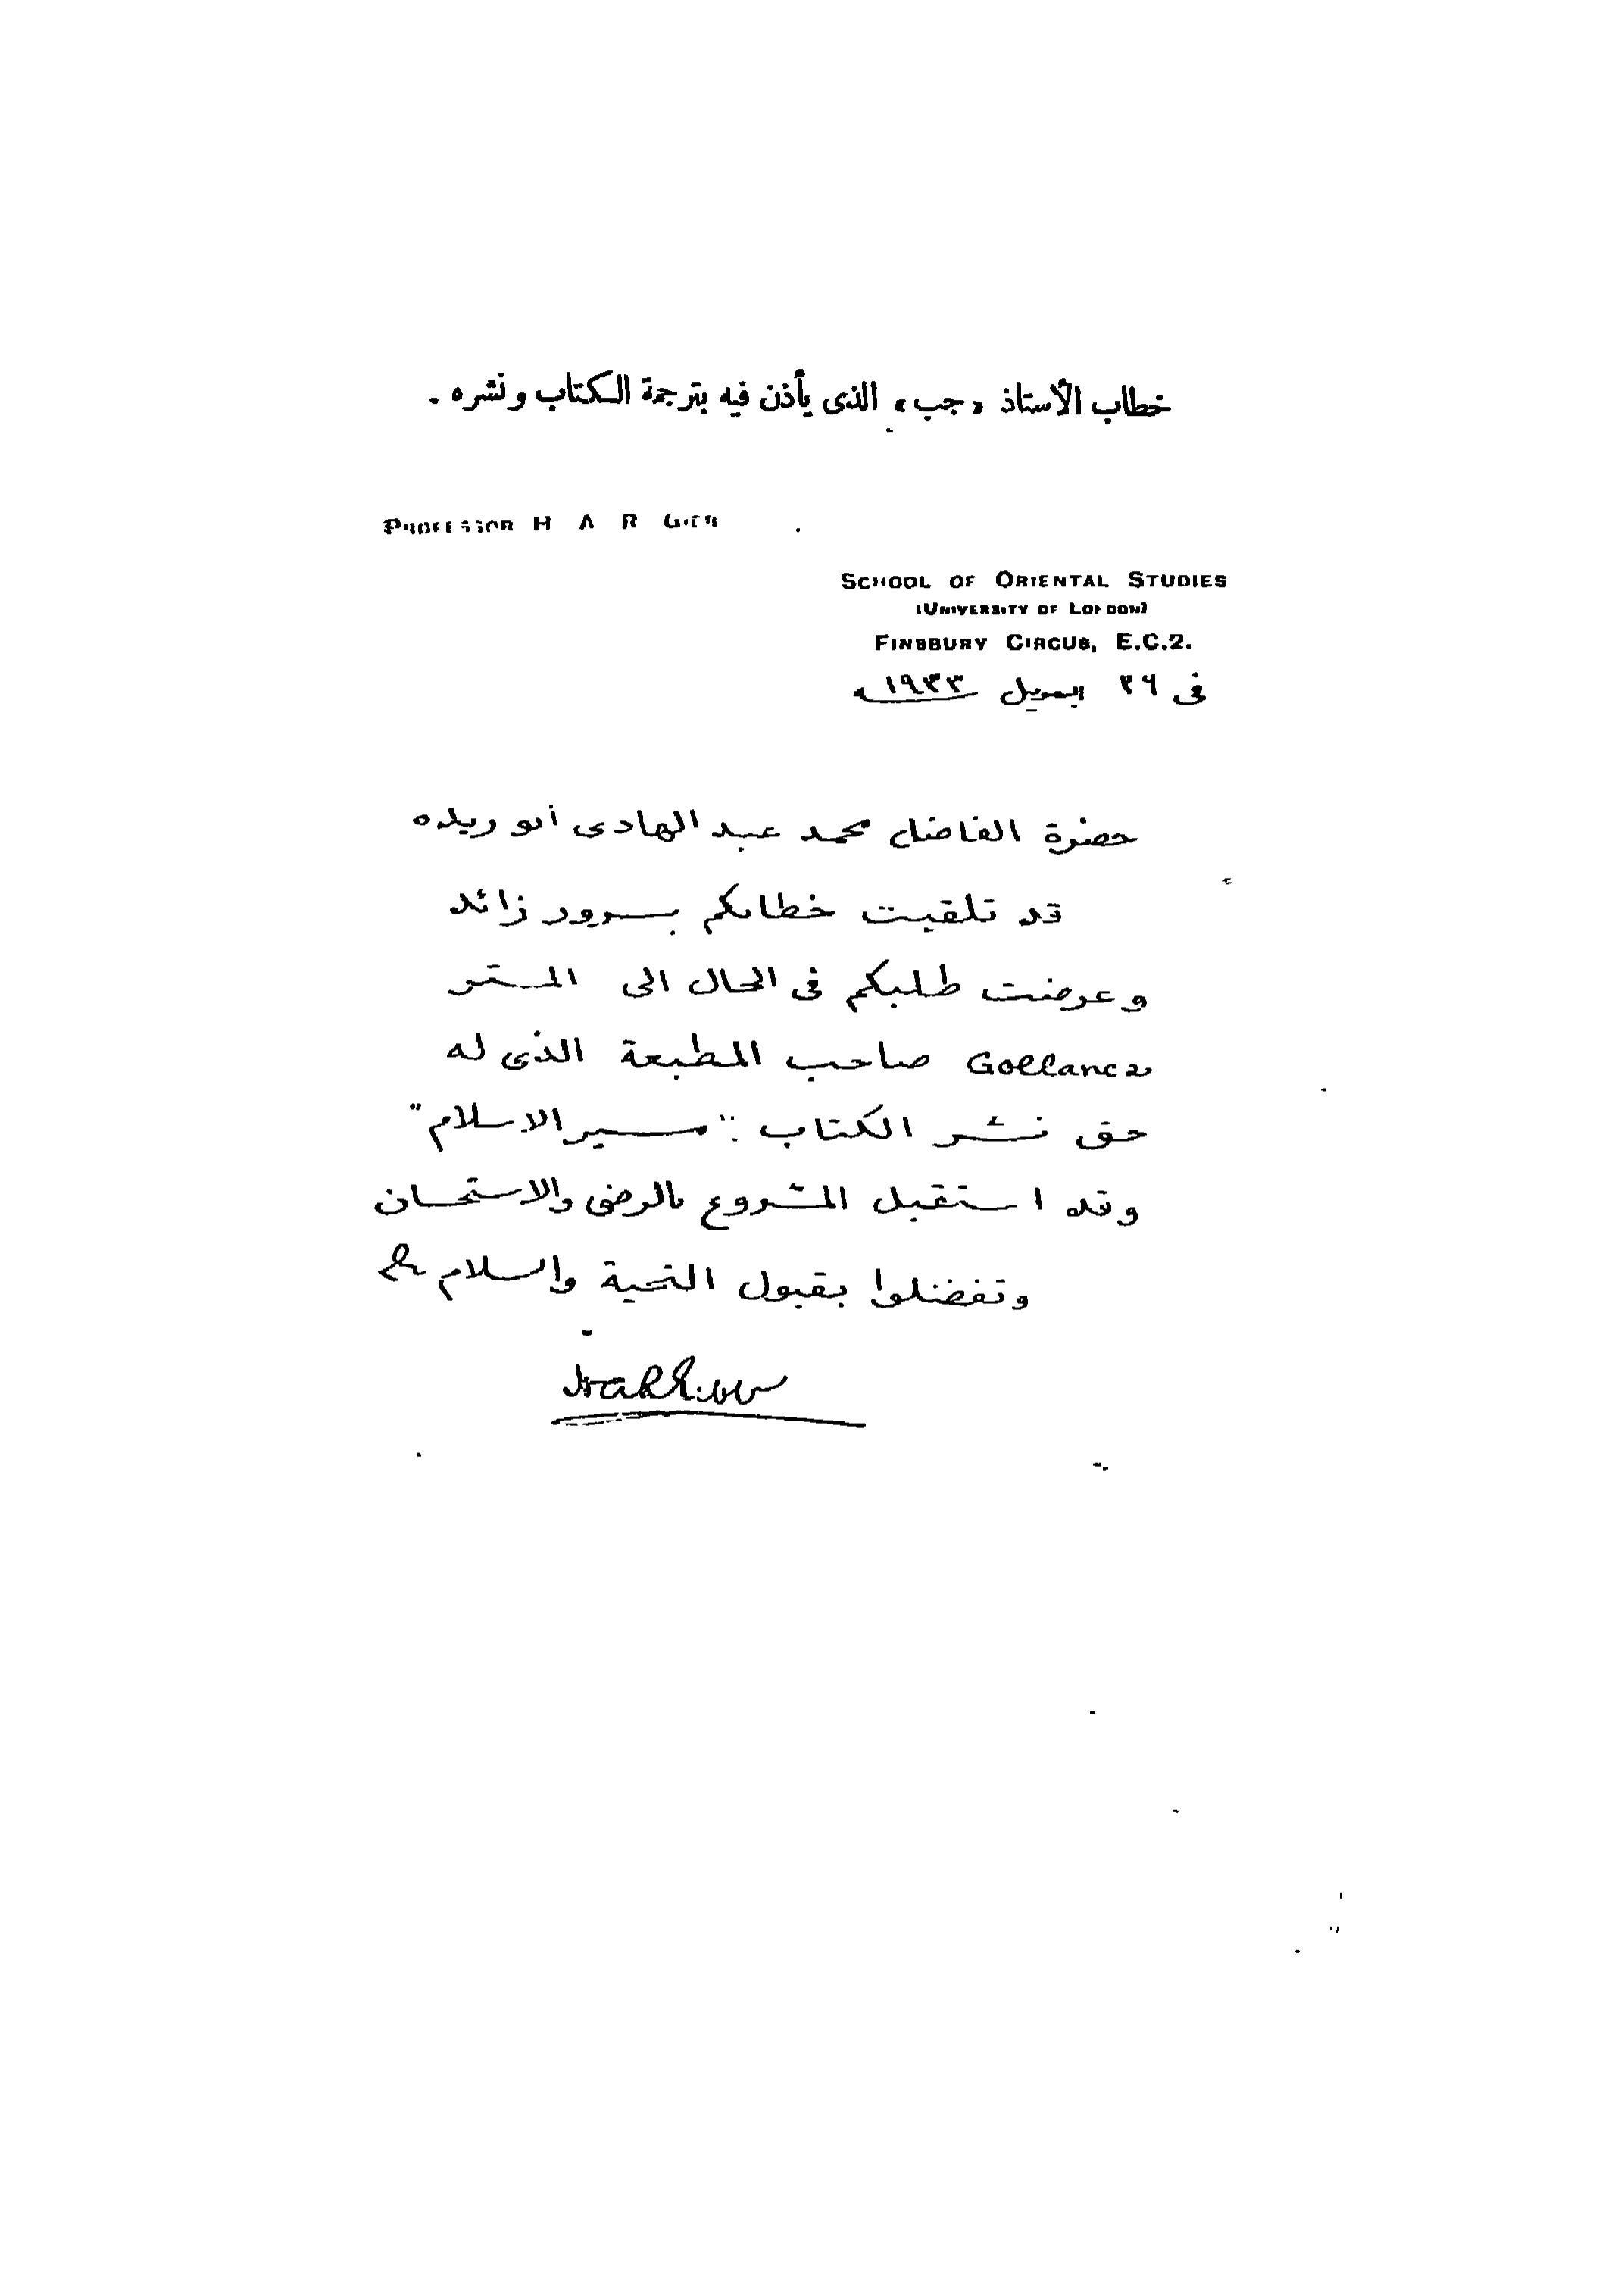 خطاب الأستاذ «جب» الذى يأذن فيه بترجمة الكتاب ونشره .
PROFESSOR H A R GIBB
SCHOOL OF ORIENTAL STUDIES
(UNIVERSITY OF LONDON)
FINSBURY CIRCUS, E.C.2.
فى ٢٦ ابريل ١٩٣٣
حضرة الفاضل محمد عبد الهادى أبو ريده
قد تلقيت خطابكم بسرور زائد
وعرضت طلبكم فى الحال الى المستر
Gollancz صاحب المطبعة الذى له
حق نشر الكتاب : "مسير الاسلام"
وقد استقبل المشروع بالرضى والاستحسان
وتفضلوا بقبول التحية والسلام
HARGibb